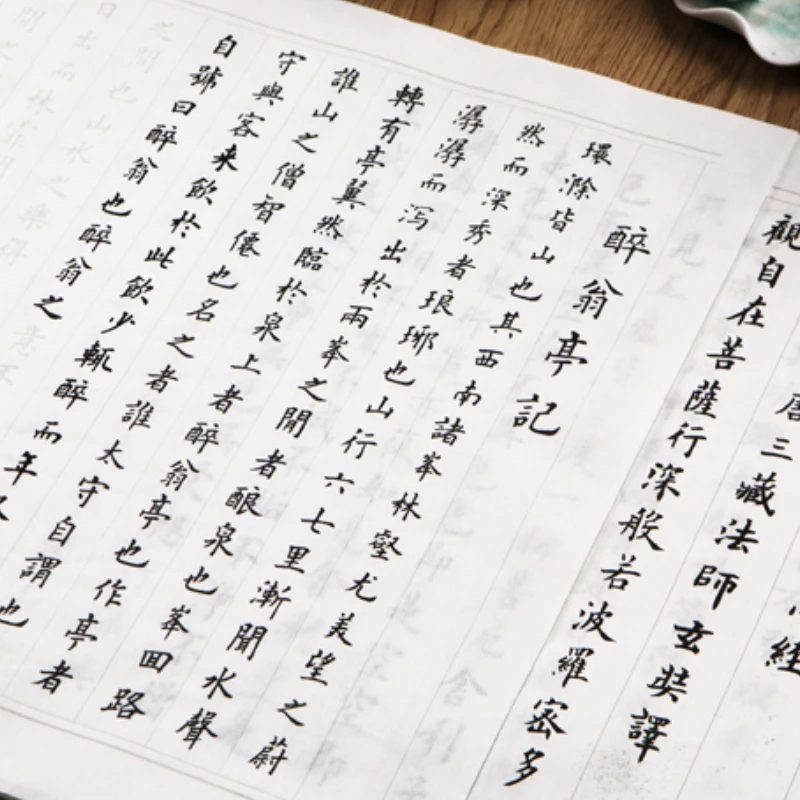 經
唐三藏法師玄奘譯
觀自在菩薩行深般若波羅密多
醉翁亭記
環滁皆山也其西南諸峯林壑尤美望之蔚
然而深秀者琅琊也山行六七里漸聞水聲
潺潺而泻出於兩峯之間者酿泉也峯回路
轉有亭翼然臨於泉上者醉翁亭也作亭者
誰山之僧智僊也名之者誰太守自謂也
守與客来飲於此飲少輒醉而年又
自號曰醉翁也醉翁之